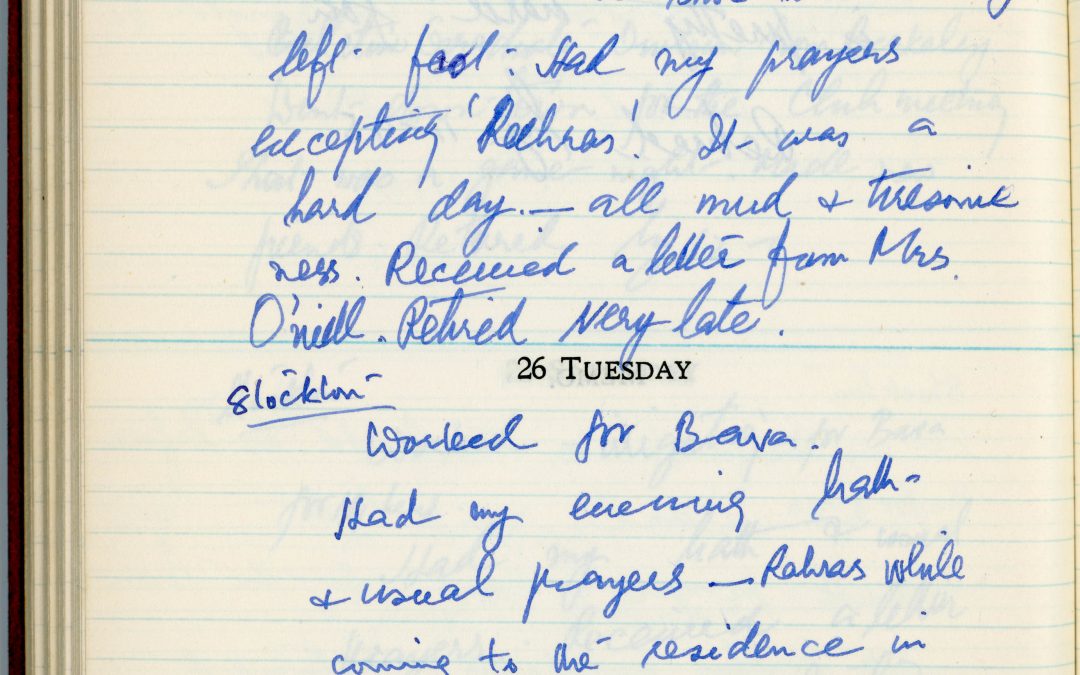 left foot. Had my prayers
excepting 'Rehras'. It was a
hard day. — all mud & tiresome
ness. Received a letter from Mrs.
O'niell. Retired very late.
26 TUESDAY
Stockton
Worked for Bawa.
Had my evening bath
& usual prayers — Rahras while
coming to the residence in